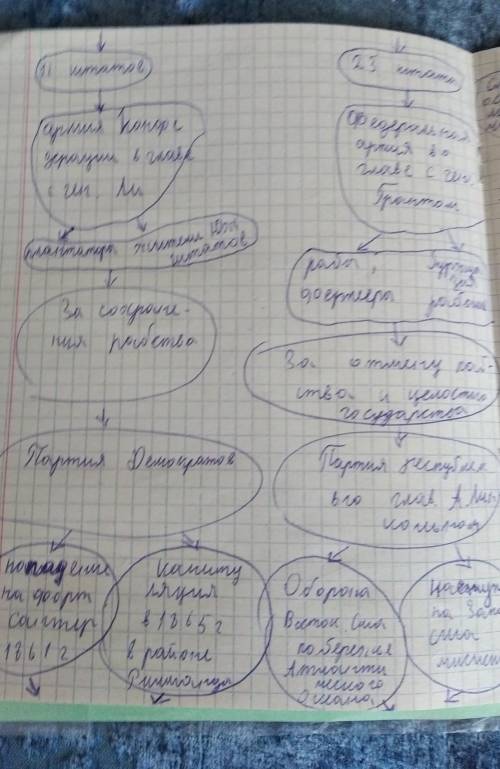 11 штатов
армия Конфе
дерации в главе
с ген. Ли
плантаторы жители Юж
штатов
За сохране-
ния рабства
Партия Демократов
нападение
на форт
Самтер
1861 г
Капиту
ляция
в 1865 г
в районе
Ричмонда
23 штата
Федеральная
армия во
главе с ген.
Грантом
рабы,
фермеры рабочие
За отмену раб-
ства и целостно
государства
Партия Республик
во глав. А. Лин
кольном
Оборона
Восток. США
побережия
Атланти
ческого
Океана
на Запа
США